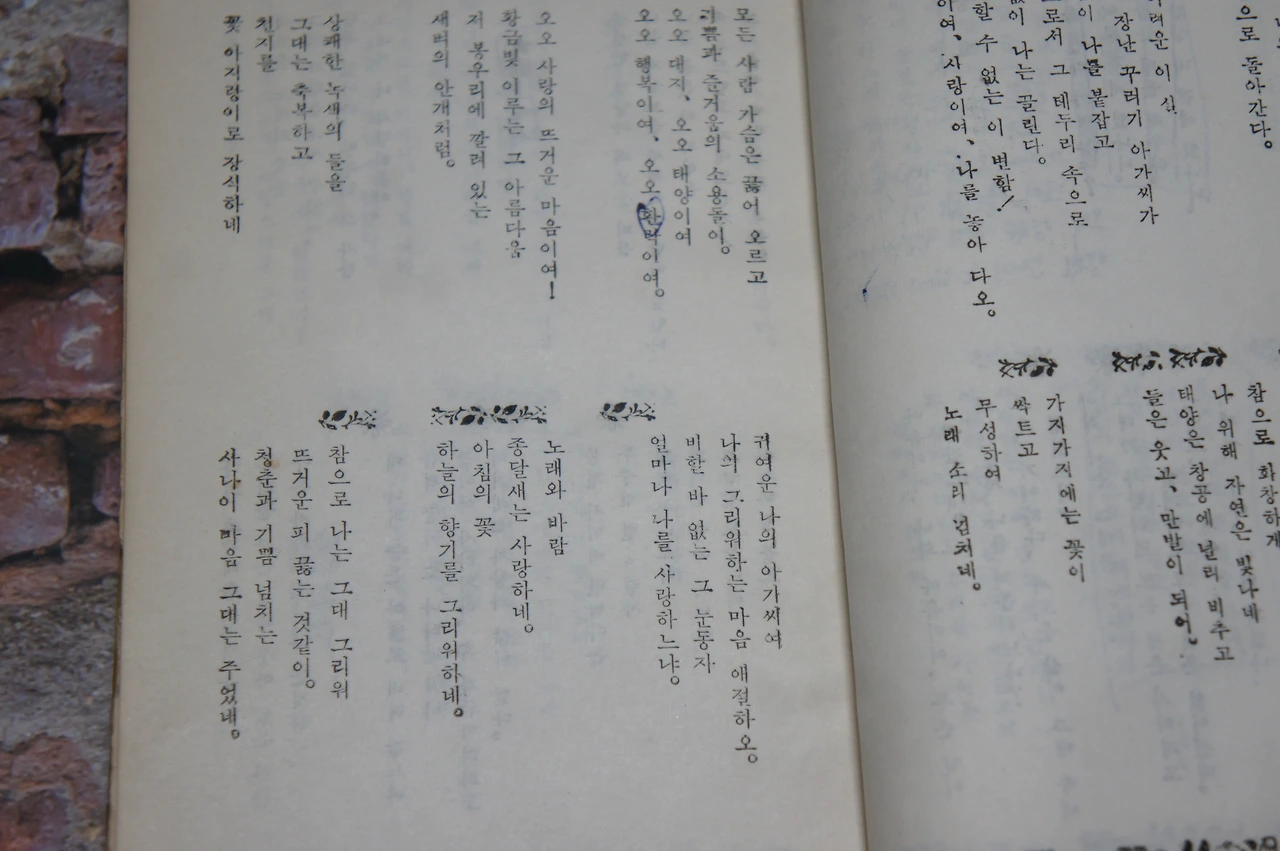 으로 돌아간다。
장난 꾸러기 아가씨가
이 나를 붙잡고
로서 그 테두리 속으로
없이 나는 끌린다。
할 수 없는 이 변함!
여, 사랑이여, 나를 놓아 다오。
참으로 화창하게
나 위해 자연은 빛나네
태양은 창공에 널리 비추고
들은 웃고, 만발이 되어。
가지가지에는 꽃이
싹트고
무성하여
노래 소리 넘쳐네。
모든 사람 가슴은 끓어 오르고
기쁨과 즐거움의 소용돌이。
오오 대지、 오오 태양이여
오오 행복이여、 오오 환락이여。
오오 사랑의 뜨거운 마음이여!
황금빛 이루는 그 아름다움
저 봉우리에 깔려 있는
새벽의 안개처럼。
상쾌한 녹색의 들을
그대는 축복하고
천지를
꽃 아지랑이로 장식하네
귀여운 나의 아가씨여
나의 그리워하는 마음 애절하오。
비할 바 없는 그 눈동자
얼마나 나를 사랑하느냐。
노래와 바람
종달새는 사랑하네。
아침의 꽃
하늘의 향기를 그리워하네。
참으로 나는 그대 그리워
뜨거운 피 끓는 것같이。
청춘과 기쁨 넘치는
사나이 마음 그대는 주었네。